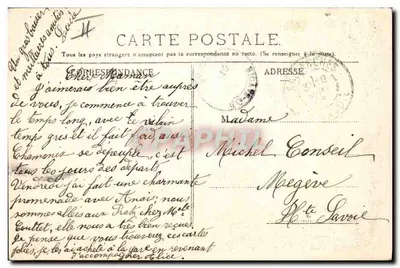 Un gros baiser
et meilleures amitiés
à tous. Cécile
CARTE POSTALE
Tous les pays étrangers n'acceptent pas la correspondance au verso. (Se renseigner à la poste).
CORRESPONDANCE
ADRESSE
Chère Maman
J'aimerais bien être auprès
de vous, je commence à trouver
le temps long, avec ce vilain
temps gris et il fait froid aussi
Chamonix se dépeuple, c'est
tous les jours des départs
Vendredi j'ai fait une charmante
promenade avec Anaïs, nous
sommes allées aux Praz chez Mme
Couttet, elle nous a très bien reçues,
je pense que vous trouverez ces cartes
jolies, je les ai achetées à la gare en revenant
d'accompagner Alice.
Madame
Michel Conseil
Megève
Hte Savoie